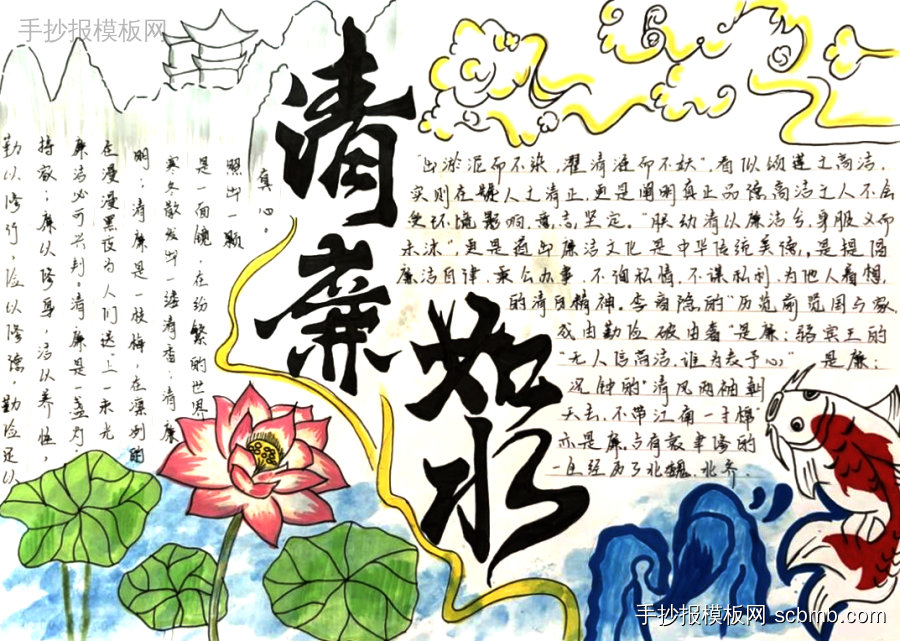 手抄报模板网
清廉
如水
"出淤泥而不染,濯清涟而不妖",看似颂莲之高洁,
实则在赞人之清正,更是阐明真正品德高洁之人不会
受环境影响,意志坚定。"
更是指出廉洁文化是中华传统美德,是提倡
廉洁自律,秉公办事,不徇私情,不谋私利,为他人着想,
的清白精神。李商隐的"历览前览国与家
成由勤俭破由奢"是廉;骆宾王的
"无人信高洁,谁为表予心" 是廉;
况钟的"清风两袖朝
天去,不带江南一寸棉"
亦是廉,
一生经历了北魏、北齐、
真心。
照出一颗
是一面镜,在纷繁的世界
寒冬散发出一缕清香;清廉
明;清廉是一枝梅,在凛冽的
在漫漫黑夜为人们送上一束光
廉洁必可兴判。清廉是一盏灯,
持家;廉以修身,洁以养性,
勤以修行,俭以修德,勤俭足以
手抄报模板网 scbmb.com